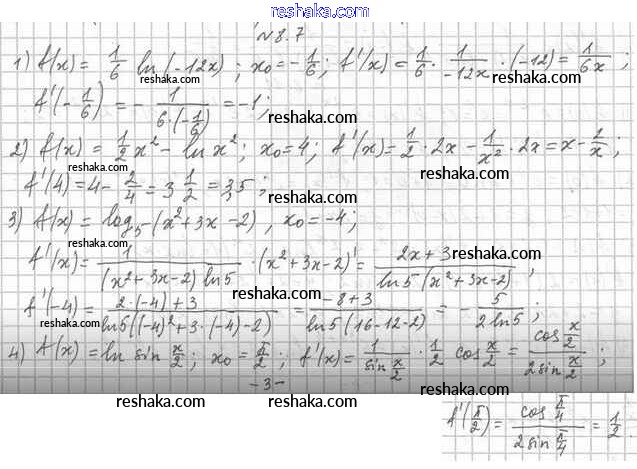 reshaka.com
№8.7
1) f(x) = 1/6 ln(-12x); x₀ = -1/6; f'(x) = 1/6 · 1/(-12x) · (-12) = 1/(6x);
reshaka.com reshaka.com
f'(-1/6) = - 1/(6·(-1/6)) = -1;
reshaka.com
2) f(x) = 1/2 x² - ln x²; x₀ = 4; f'(x) = 1/2 · 2x - 1/x² · 2x = x - 2/x;
reshaka.com reshaka.com
f'(4) = 4 - 2/4 = 3 1/2 = 3,5;
reshaka.com
3) f(x) = log₅ (x² + 3x - 2), x₀ = -4;
reshaka.com
f'(x) = 1/((x² + 3x - 2) ln5) · (x² + 3x - 2)' = (2x + 3)/(ln5 (x² + 3x - 2));
reshaka.com
f'(-4) = (2·(-4) + 3)/(ln5((-4)² + 3·(-4) - 2)) = (-8 + 3)/(ln5(16 - 12 - 2)) = - 5/(2 ln5);
reshaka.com reshaka.com
4) f(x) = ln sin x/2; x₀ = π/2; f'(x) = 1/(sin x/2) · 1/2 cos x/2 = (cos x/2)/(2 sin x/2);
-3-
reshaka.com reshaka.com
f'(π/2) = (cos π/4)/(2 sin π/4) = 1/2.
reshaka.com